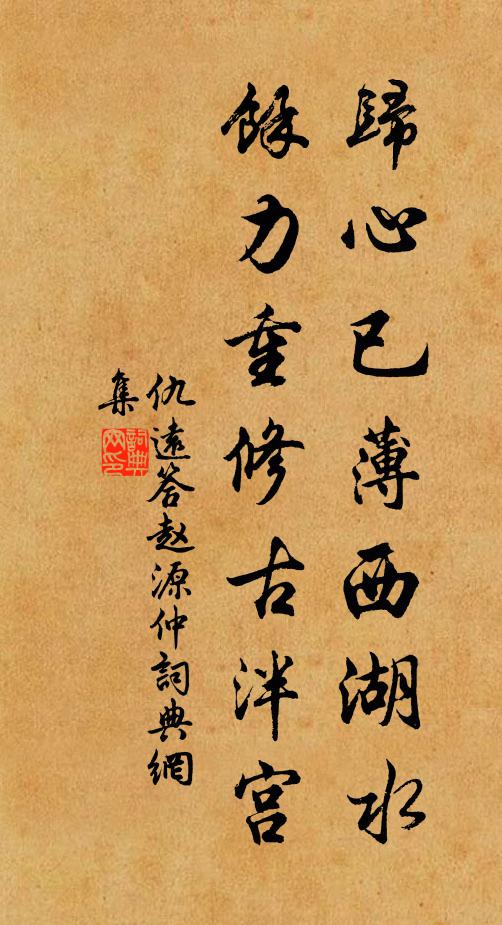 歸心已薄西湖水
餘力重修古泮宮
仇遠答赵源仲詞典網
集
詞典
网印